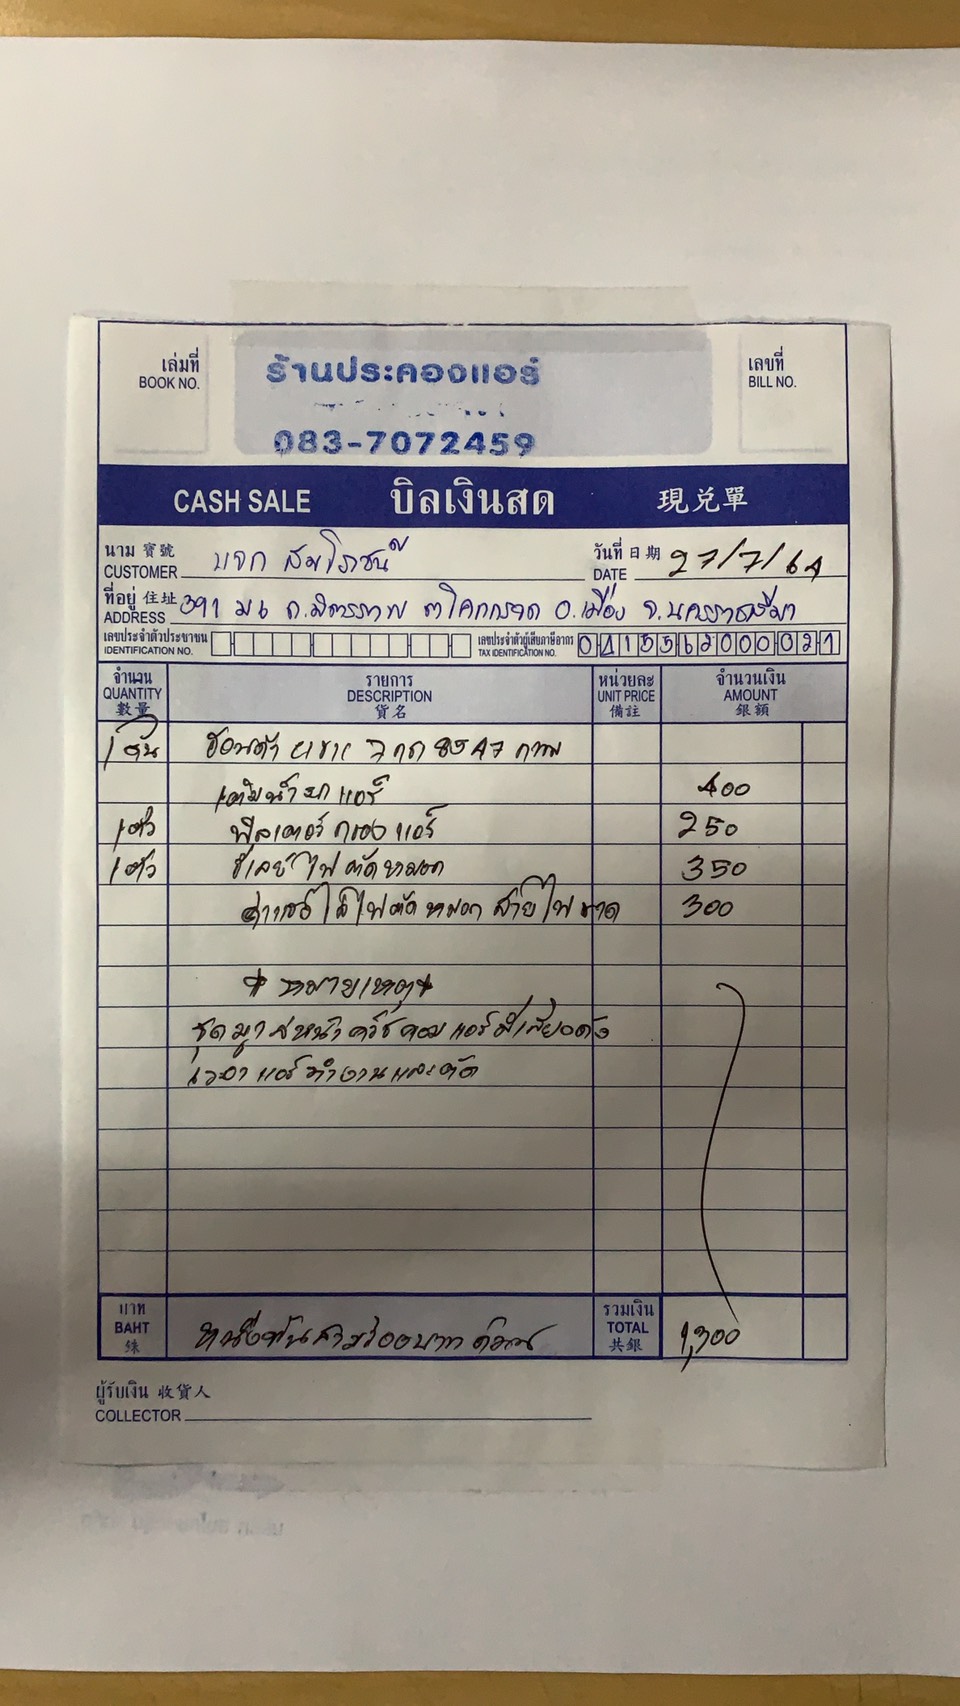 เล่มที่
BOOK NO.
ร้านประคองแอร์
083-7072459
เลขที่
BILL NO.
CASH SALE บิลเงินสด 現兌單
นาม 寶號
CUSTOMER บจก สมโรชน์
วันที่ 日期
DATE 27/7/64
ที่อยู่ 住址
ADDRESS 391 ม6 ถ.มิตรภาพ ต โคกกรวด อ.เมือง จ.นครราชสีมา
เลขประจำตัวประชาชน
IDENTIFICATION NO.
เลขประจำตัวผู้เสียภาษีอากร
TAX IDENTIFICATION NO.
จำนวน
QUANTITY
數量
รายการ
DESCRIPTION
貨名
หน่วยละ
UNIT PRICE
備註
จำนวนเงิน
AMOUNT
銀額
1 คัน ฮอนด้า 7 กฌ 8547 กทม
เติมน้ำยาแอร์ 400
1 ตัว ฟิลเตอร์กรองแอร์ 250
1 ตัว รีเลย์ไฟตัดหมอก 350
ค่าแรงไล่ไฟตัดหมอก สายไฟขาด 300
* หมายเหตุ *
ชุดมูเล่ หน้าครัชคอมแอร์มีเสียงดัง
เวลาแอร์ทำงานและตัด
บาท
BAHT
銖
หนึ่งพันสามร้อยบาทถ้วน
รวมเงิน
TOTAL
共銀
1,300
ผู้รับเงิน 收貨人
COLLECTOR